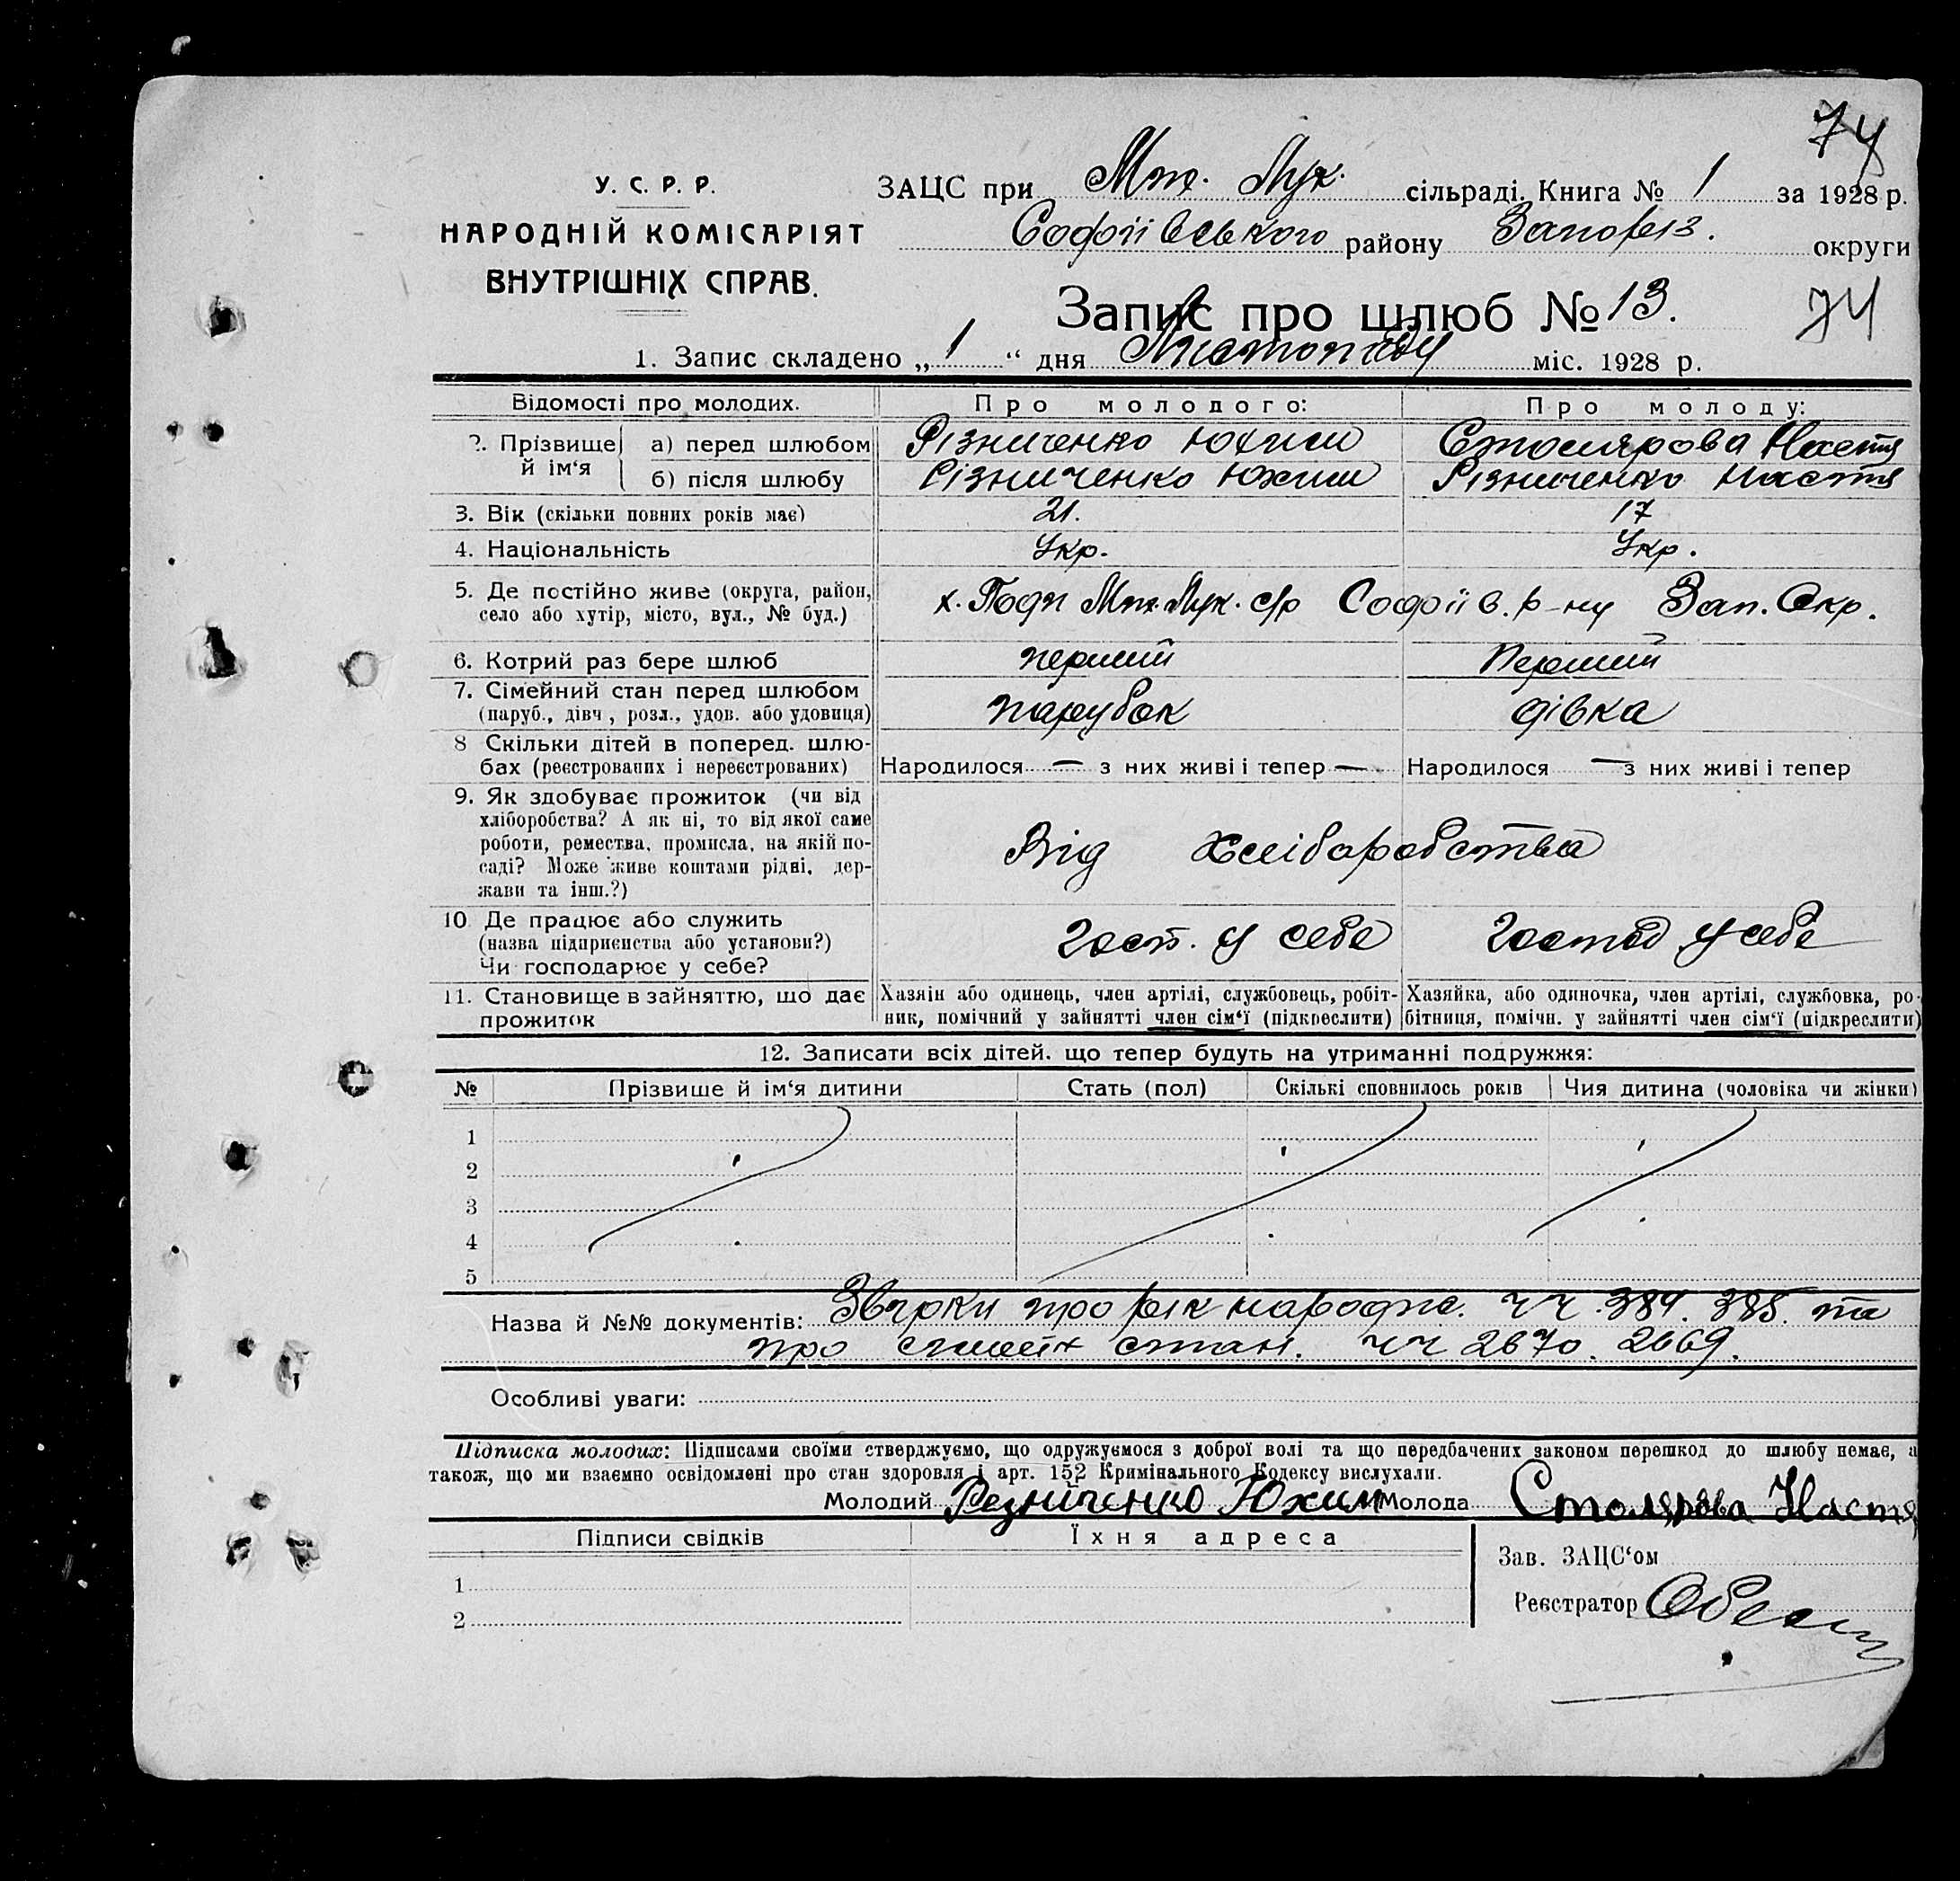 74
У. С. Р. Р.
НАРОДНІЙ КОМІСАРІЯТ
ВНУТРІШНІХ СПРАВ.
ЗАЦС при Мих. Лук. сільраді. Книга № 1 за 1928 р.
Софіївського району Запоріз. округи
Запис про шлюб № 13.
74
1. Запис складено „1“ дня Листопаду міс. 1928 р.
Відомості про молодих. Про молодого: Про молоду:
2. Прізвище й ім‘я а) перед шлюбом Різниченко Юхим Столярова Настя
б) після шлюбу Різниченко Юхим Різниченко Настя
3. Вік (скільки повних років має) 21. 17
4. Національність Укр. Укр.
5. Де постійно живе (округа, район, село або хутір, місто, вул., № буд.) х. Мих. Лук. с/р Софіїв. р-ну Зап. Окр.
6. Котрий раз бере шлюб перший Перший
7. Сімейний стан перед шлюбом (паруб., дівч., розл., удов. або удовиця) парубок дівка
8 Скільки дітей в поперед. шлюбах (реєстрованих і нереєстрованих) Народилося — з них живі і тепер — Народилося — з них живі і тепер
9. Як здобуває прожиток (чи від хліборобства? А як ні, то від якої саме роботи, ремества, промисла, на якій посаді? Може живе коштами рідні, держави та інш.?) Від хліборобства
10 Де працює або служить (назва підприєнства або установи?) Чи господарює у себе? Госп. у себе Господ у себе
11. Становище в зайняттю, що дає прожиток
Хазяін або одинець, член артілі, службовець, робітник, помічний у зайнятті член сім‘ї (підкреслити)
Хазяйка, або одиночка, член артілі, службовка, робітниця, помічн. у зайнятті член сім‘ї (підкреслити)
12. Записати всіх дітей. що тепер будуть на утриманні подружжя:
№ Прізвише й ім‘я дитини Стать (пол) Скількі сповнилось років Чия дитина (чоловіка чи жінки)
1
2
3
4
5
Назва й №№ документів: про рік народж. чч. 384. 385. та
про стан. чч 2670. 2669.
Особливі уваги:
Підписка молодих: Підписами своїми стверджуємо, що одружуємося з доброї волі та що передбачених законом перешкод до шлюбу немає, а
також, що ми взаємно освідомлені про стан здоровля і арт. 152 Кримінального Кодексу вислухали.
Молодий Резніченко Юхим Молода Столярова Настя
Підписи свідків Їхня адреса
Зав. ЗАЦС‘ом
1
Реєстратор
2